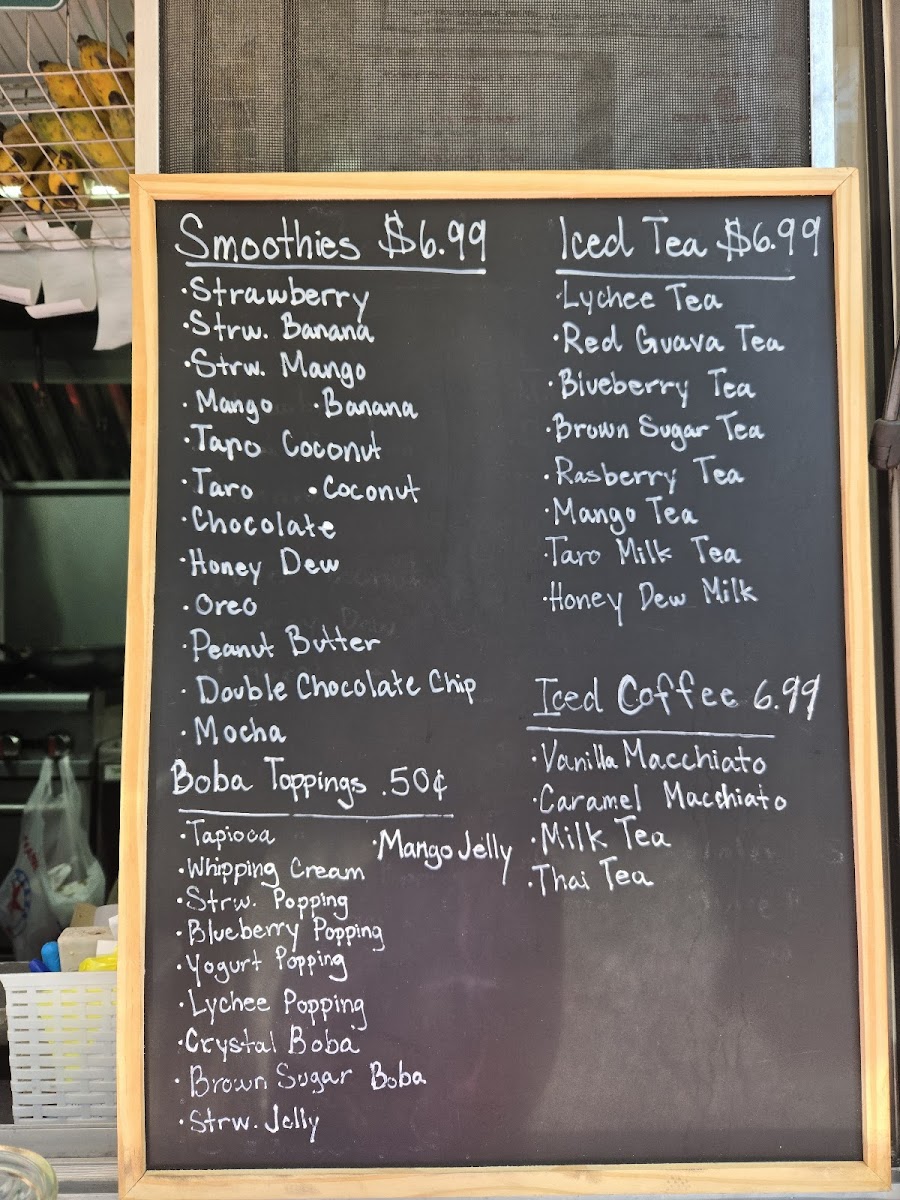 Smoothies $6.99
·Strawberry
·Strw. Banana
·Strw. Mango
·Mango ·Banana
·Taro Coconut
·Taro ·Coconut
·Chocolate
·Honey Dew
·Oreo
·Peanut Butter
·Double Chocolate Chip
·Mocha
Boba Toppings .50¢
·Tapioca
·Mango Jelly
·Whipping Cream
·Strw. Popping
·Blueberry Popping
·Yogurt Popping
·Lychee Popping
·Crystal Boba
·Brown Sugar Boba
·Strw. Jelly
Iced Tea $6.99
·Lychee Tea
·Red Guava Tea
·Blueberry Tea
·Brown Sugar Tea
·Rasberry Tea
·Mango Tea
·Taro Milk Tea
·Honey Dew Milk
Iced Coffee 6.99
·Vanilla Macchiato
·Caramel Macchiato
·Milk Tea
·Thai Tea